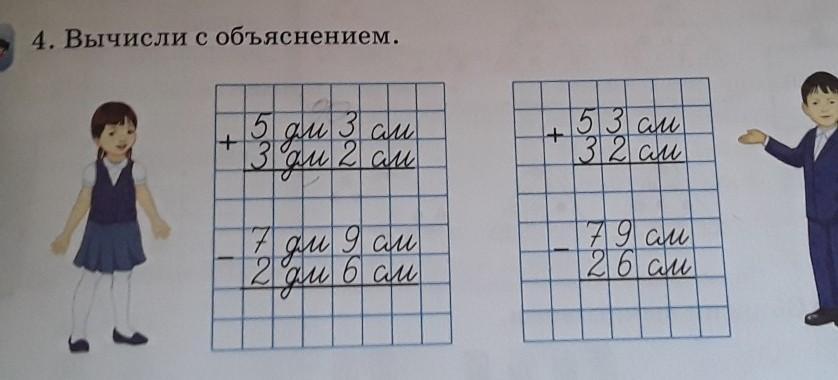 4. Вычисли с объяснением.
+ 5 дм 3 см
3 дм 2 см
− 7 дм 9 см
2 дм 6 см
+ 53 см
32 см
− 79 см
26 см